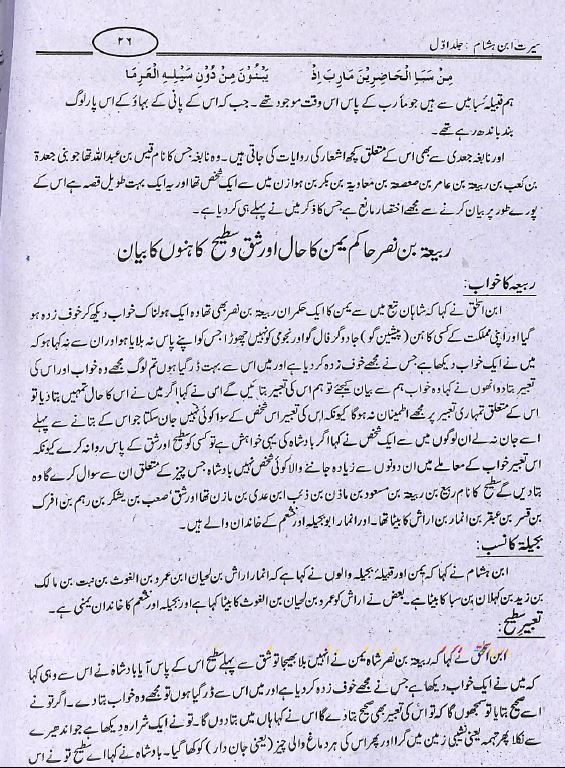 سیرت ابن ہشام : جلد اوّل ۲۶
مِنْ سَبَأَ الْحَاضِرِیْنَ مَاْرِبَ اِذْ یَبْنُوْنَ مِنْ دُوْنِ سَیْلِهِ الْعَرِمَا
ہم قبیلہ سبا میں سے ہیں جو مأرب کے پاس اس وقت موجود تھے۔ جب کہ اس کے پانی کے بہاؤ کے اس پار لوگ
بند باندھ رہے تھے۔
اور نابغہ جعدی سے بھی اس کے متعلق کچھ اشعار کی روایات کی جاتی ہیں۔ وہ نابغہ جس کا نام قیس بن عبد اللہ تھا جو بنی جعدۃ
بن کعب بن ربیعۃ بن عامر بن صعصعۃ بن معاویۃ بن بکر بن ہوازن میں سے ایک شخص تھا اور یہ ایک بہت طویل قصہ ہے اس کے
پورے طور پر بیان کرنے سے مجھے اختصار مانع ہے جس کا ذکر میں نے پہلے ہی کر دیا ہے۔
ربیعۃ بن نصر حاکم یمن کا حال اور شق و سطیح کاہنوں کا بیان
ربیعہ کا خواب:
ابن اسحٰق نے کہا کہ شاہان تبع میں سے یمن کا ایک حکمران ربیعۃ بن نصر بھی تھا وہ ایک ہولناک خواب دیکھ کر خوف زدہ ہو
گیا اور اپنی مملکت کے کسی کاہن (پیشین گو) جادوگر فال گو اور نجومی کو نہیں چھوڑا جس کو اپنے پاس نہ بلایا ہو اور ان سے نہ کہا ہو کہ
میں نے ایک خواب دیکھا ہے جس نے مجھے خوف زدہ کر دیا ہے اور میں اس سے بہت ڈر گیا ہوں تم لوگ مجھے وہ خواب اور اس کی
تعبیر بتا دو انھوں نے کہا وہ خواب ہم سے بیان کیجئے تو ہم اس کی تعبیر بتائیں گے اس نے کہا اگر میں نے اس کا حال تمہیں بتا دیا تو
اس کے متعلق تمہاری تعبیر پر مجھے اطمینان نہ ہو گا کیونکہ اس کی تعبیر اس شخص کے سوا کوئی نہیں جان سکتا جو اس کے بتانے سے پہلے
اسے جان نہ لے ان لوگوں میں سے ایک شخص نے کہا اگر بادشاہ کی یہی خواہش ہے تو کسی کو سطیح اور شق کے پاس روانہ کرے کیونکہ
اس تعبیر خواب کے معاملے میں ان دونوں سے زیادہ جاننے والا کوئی شخص نہیں بادشاہ جس چیز کے متعلق ان سے سوال کرے گا وہ
بتا دیں گے سطیح کا نام ربیع بن ربیعۃ بن مسعود بن مازن بن ذئب ابن عدی بن مازن تھا اور شق، صعب بن یشکر بن رہم بن افرک
بن قسر بن عبقر بن انمار بن اراش کا بیٹا تھا۔ اور انمار ابو بجیلہ اور خثعم کے خاندان والے ہیں۔
بجیلۃ کا نسب:
ابن ہشام نے کہا کہ یمن اور قبیلۂ بجیلہ والوں نے کہا ہے کہ انمار اراش بن لحیان ابن عمرو بن الغوث بن نبت بن مالک
بن زید بن کہلان بن سبا کا بیٹا ہے۔ بعض نے اراش کو عمرو بن لحیان بن الغوث کا بیٹا کہا ہے اور بجیلہ اور خثعم کا خاندان یمنی ہے۔
تعبیر سطیح:
ابن اسحٰق نے کہا کہ ربیعۃ بن نصر شاہ یمن نے انہیں بلا بھیجا تو شق سے پہلے سطیح اس کے پاس آیا بادشاہ نے اس سے وہی کہا
کہ میں نے ایک خواب دیکھا ہے جس نے مجھے خوف زدہ کر دیا ہے اور میں اس سے ڈر گیا ہوں تو مجھے وہ خواب بتا دے۔ اگر تو نے
اسے صحیح بتایا تو سمجھوں گا کہ تو اس کی تعبیر بھی صحیح بتا دے گا اس نے کہا ہاں میں بتا دوں گا۔ تو نے ایک شرارہ دیکھا ہے جو اندھیرے
سے نکلا پھر تہمہ یعنی نشیبی زمین میں گرا اور پھر اس کی ہر دماغ والی چیز (یعنی جان دار) کو کھا گیا۔ بادشاہ نے کہا اے سطیح تو نے اس